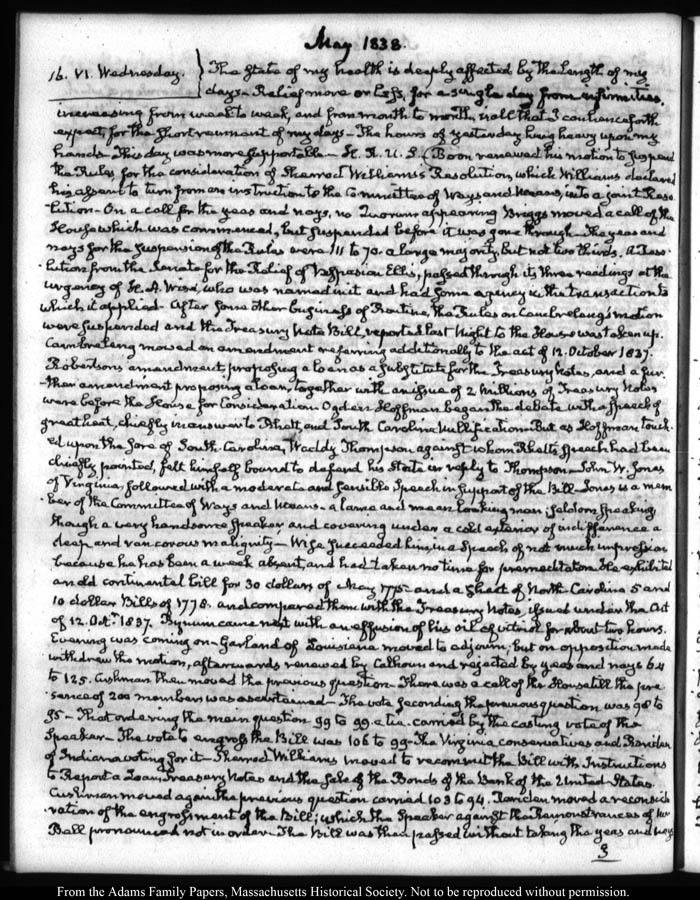 May 1838.
16. VI. Wednesday. The State of my health is deeply affected by the length of my
days - Relief more or less, for a single day from infirmities,
increasing from week to week, and from month to month, is all that I can henceforth
expect, for the short remnant of my days - The hours of yesterday hung heavy upon my
hands - This day was more supportable - H. R. U. S. Boon renewed his motion to suspend
the Rules for the consideration of Sherrod Williams's Resolution, which Williams declared
his assent to turn from an instruction to the Committee of Ways and Means, into a joint Reso
lution - On a call for the yeas and nays, no Quorum appearing Briggs moved a call of the
House which was commenced, but suspended before it was gone through. The yeas and
nays for the suspension of the Rules were 111 to 70. a large majority, but not two thirds. A Reso
lution from the Senate for the Relief of Vespasian Ellis, passed through its three readings at the
urgency of H. A. Wise, who was named in it and had some agency in the transaction to
which it applied - After some other business of Routine, the Rules on Cambreleng's motion
were suspended and the Treasury Note Bill, reported last Night to the House was taken up.
Cambreleng moved an amendment referring additionally to the act of 12. October 1837.
Robertson's amendment, proposing a loan as a substitute for the Treasury Notes, and a fur
ther amendment proposing a loan together with an issue of 2 Millions of Treasury Notes
were before the House for Consideration. Ogden Hoffman began the debate with a speech of
great heat, chiefly in answer to Rhett, and South Carolina Nullification - But as Hoffman touch
ed upon the sore of South Carolina, Waddy Thompson against whom Rhett's speech had been
chiefly pointed, felt himself bound to defend his State in reply to Thompson - John W. Jones
of Virginia, followed with a moderate and sensible Speech in support of the Bill - Jones is a mem
ber of the Committee of Ways and Means - a lame and mean looking man, seldom speaking,
though a very handsome speaker and covering under a cold exterior of indifference a
deep and rancorous malignity - Wise succeeded him, in a Speech of not much impression
because he has been a week absent, and had taken no time for premeditation. He exhibited
an old continental bill for 30 dollars of May 1775 - and a sheet of North-Carolina 5 and
10 dollar Bills of 1778. and compared them with the Treasury Notes, issued under the Act
of 12. Oct. 1837. Bynum came next with an effusion of his oil of vitriol for about two hours.
Evening was coming on - Garland of Louisiana moved to adjourn, but on opposition made
withdrew the motion, afterwards renewed by Calhoun and rejected by yeas and nays 64
to 125. Cushman then moved the previous question - There was a call of the House till the pre
sence of 200 members was ascertained - The vote seconding the previous question was 98 to
95 - That ordering the main question 99 to 99. a tie. carried by the casting vote of the
Speaker - The vote to engross the Bill was 106 to 99 - The Virginia conservatives and Rariden
of Indiana voting for it - Sherrod Williams moved to recommit the Bill with Instructions
to Report a Loan, Treasury Notes and the sale of the Bonds of the Bank of the United States.
Cushman moved again the previous question carried 103 to 94. Rariden moved a reconside
ration of the engrossment of the Bill; which the Speaker against the Remonstrances of
Bell pronounced not in order - The Bill was then passed without taking the yeas and nays
From the Adams Family Papers, Massachusetts Historical Society. Not to be reproduced without permission.